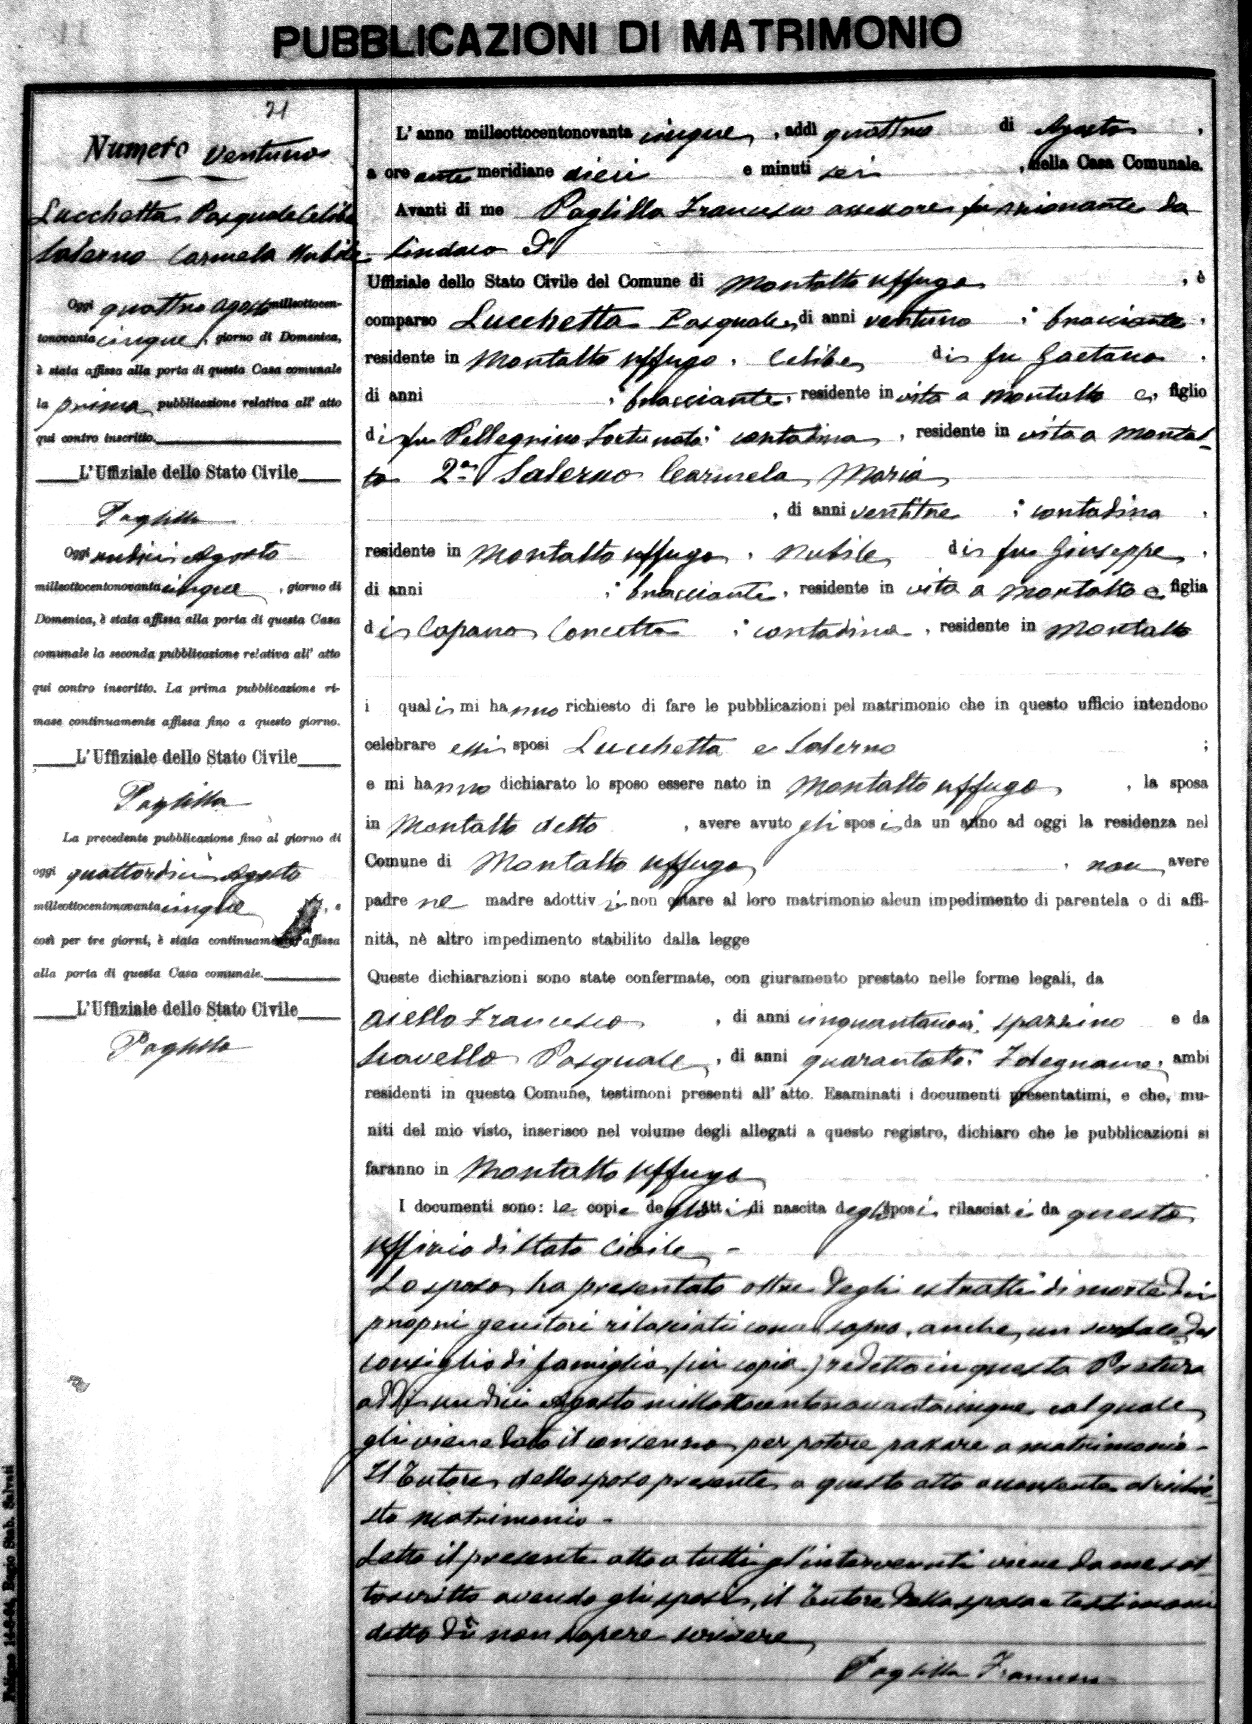 PUBBLICAZIONI DI MATRIMONIO
21
Numero ventuno
Lucchetta Pasquale Celibe
Salerno Carmela Nubile
Oggi quattro Agosto milleottocen-
tonovanta cinque, giorno di Domenica,
è stata affissa alla porta di questa Casa comunale
la prima pubblicazione relativa all' atto
qui contro inscritto.
L'Uffiziale dello Stato Civile
Paglilla
Oggi undici Agosto
milleottocentonovanta cinque, giorno di
Domenica, è stata affissa alla porta di questa Casa
comunale la seconda pubblicazione relativa all' atto
qui contro inscritto. La prima pubblicazione ri-
mase continuamente affissa fino a questo giorno.
L'Uffiziale dello Stato Civile
Paglilla
La precedente pubblicazione fino al giorno di
oggi quattordici Agosto
milleottocentonovanta cinque, e
così per tre giorni, è stata continuamente affissa
alla porta di questa Casa comunale.
L'Uffiziale dello Stato Civile
Paglilla
L' anno milleottocentonovanta cinque, addì quattro di Agosto,
a ore ante meridiane dieci e minuti sei, nella Casa Comunale.
Avanti di me Paglilla Francesco assessore funzionante da
Sindaco
Uffiziale dello Stato Civile del Comune di Montalto Uffugo, è
comparso Lucchetta Pasquale, di anni ventuno, bracciante,
residente in Montalto Uffugo, celibe di fu Gaetano,
di anni, bracciante, residente in vita a Montalto e, figlio
di fu Pellegrino Fortunata, contadina, residente in vita a Montal-
to 2ª Salerno Carmela Maria
, di anni ventitre, contadina,
residente in Montalto Uffugo, nubile di fu Giuseppe,
di anni, bracciante, residente in vita a Montalto e figlia
di Capano Concetta, contadina, residente in Montalto
i quali mi hanno richiesto di fare le pubblicazioni pel matrimonio che in questo ufficio intendono
celebrare essi sposi Lucchetta e Salerno ;
e mi hanno dichiarato lo sposo essere nato in Montalto Uffugo, la sposa
in Montalto detto, avere avuto gli sposi da un anno ad oggi la residenza nel
Comune di Montalto Uffugo, non avere
padre ne madre adottivi non ostare al loro matrimonio alcun impedimento di parentela o di affi-
nità, nè altro impedimento stabilito dalla legge
Queste dichiarazioni sono state confermate, con giuramento prestato nelle forme legali, da
Aiello Francesco, di anni cinquantanove, spazzino e da
Scavello Pasquale, di anni quarantotto, Falegname, ambi
residenti in questo Comune, testimoni presenti all' atto. Esaminati i documenti presentatimi, e che, mu-
niti del mio visto, inserisco nel volume degli allegati a questo registro, dichiaro che le pubblicazioni si
faranno in Montalto Uffugo
I documenti sono: le copie degli Atti di nascita degli sposi rilasciate da questo
Uffizio di Stato Civile
Lo sposo ha presentato oltre degli estratti di morte dei
propri genitori rilasciati come sopra, anche un verbale del
consiglio di famiglia (in copia) redatto in questa Pretura
addì undici Agosto milleottocentonovantacinque, col quale
gli viene dato il consenso per potere passare a matrimonio
Il Tutore dello sposo presente a questo atto acconsente al richie-
sto matrimonio
Letto il presente atto a tutti gl'intervenuti viene da me sot-
toscritto avendo gli sposi, il Tutore dello sposo e testimoni
detto di non sapere scrivere
Paglilla Francesco
Stab. Salvati